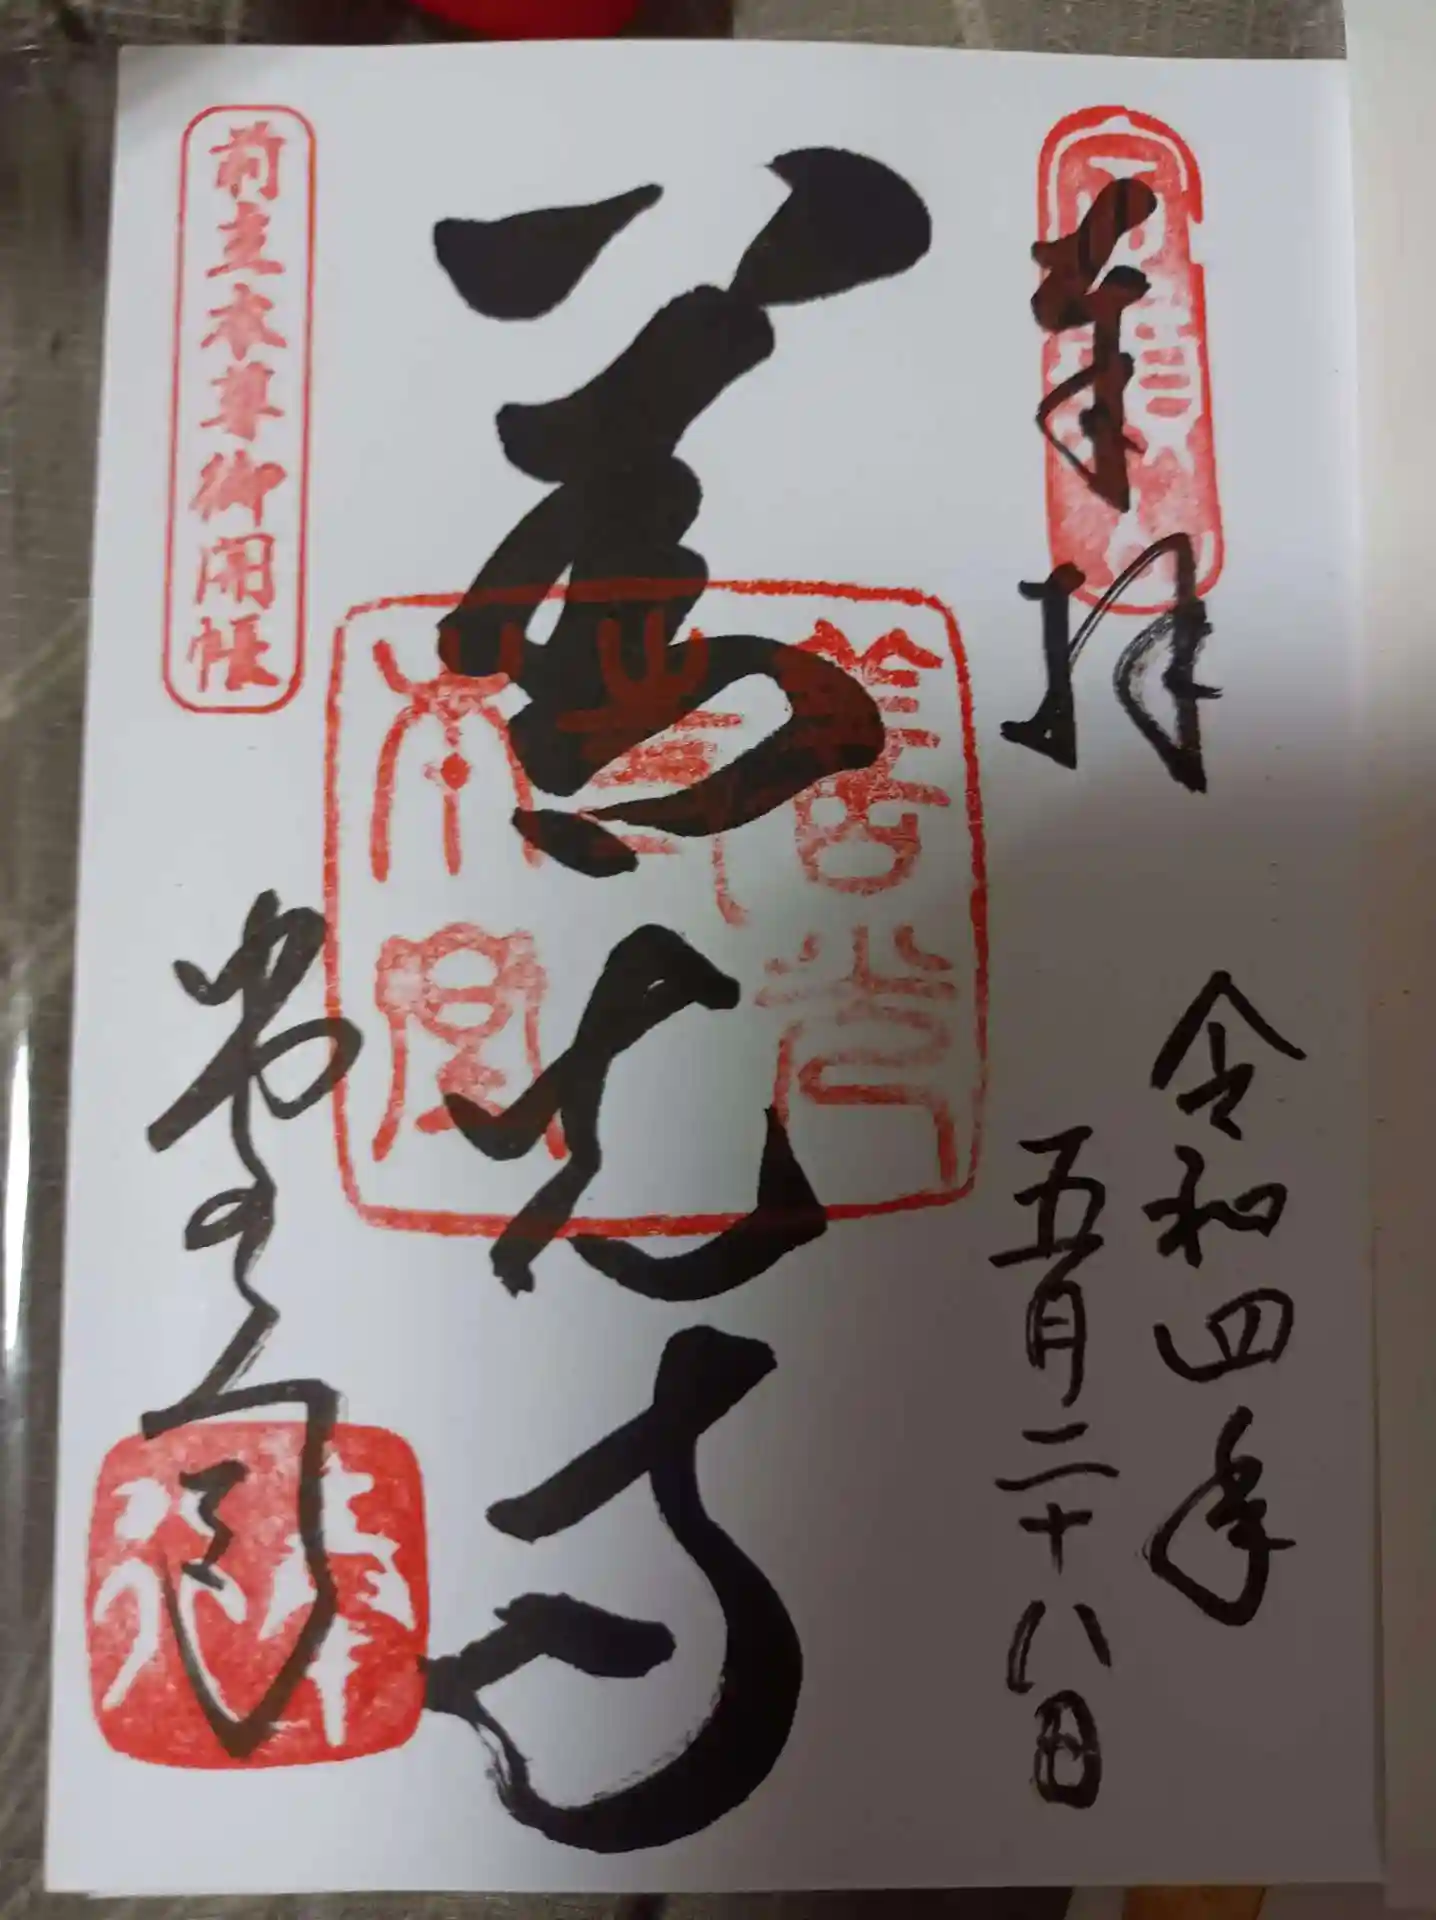 奉拝
令和四年
五月二十八日
善光寺
善光
寺本堂
前立本尊御開帳
堂司